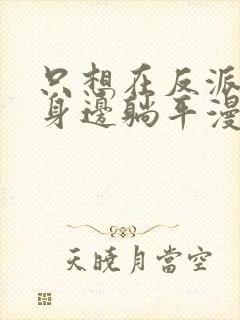 只想在反派
身邊躺平漫
天曉月當空